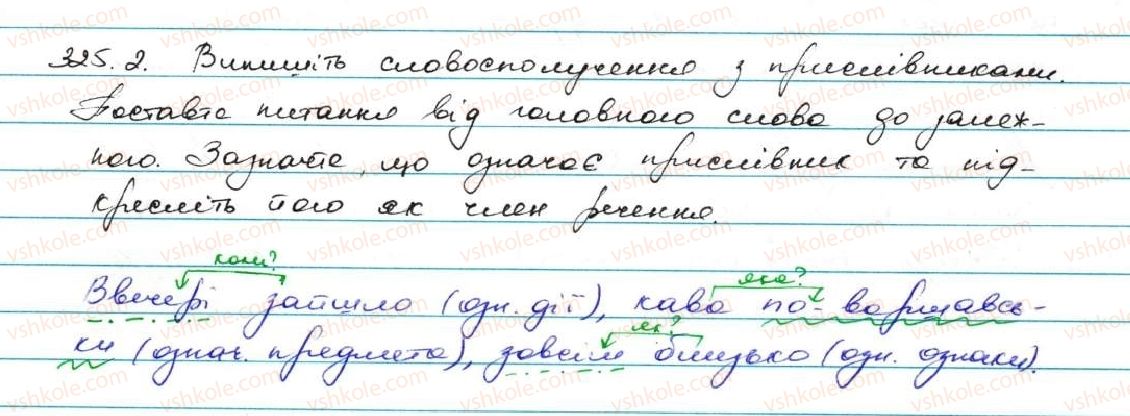 325.2. Випишіть словосполучення з прислівниками.
Поставте питання від головного слова до залеж-
ного. Зазначте, що означає прислівник та під-
кресліть його як член речення.
коли? яка?
Ввечері зайшло (озн. дії), кава по-варшавсь-
як?
ки (означ. предмета), зовсім близько (озн. ознаки).